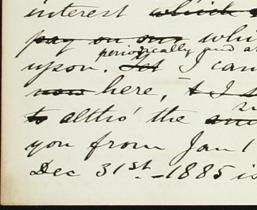 interest which
pay on my whi
periodically and a
upon. Yet I can
now here, & I s
to altho' the am
you from Jan 1
Dec 31st - 1885 is